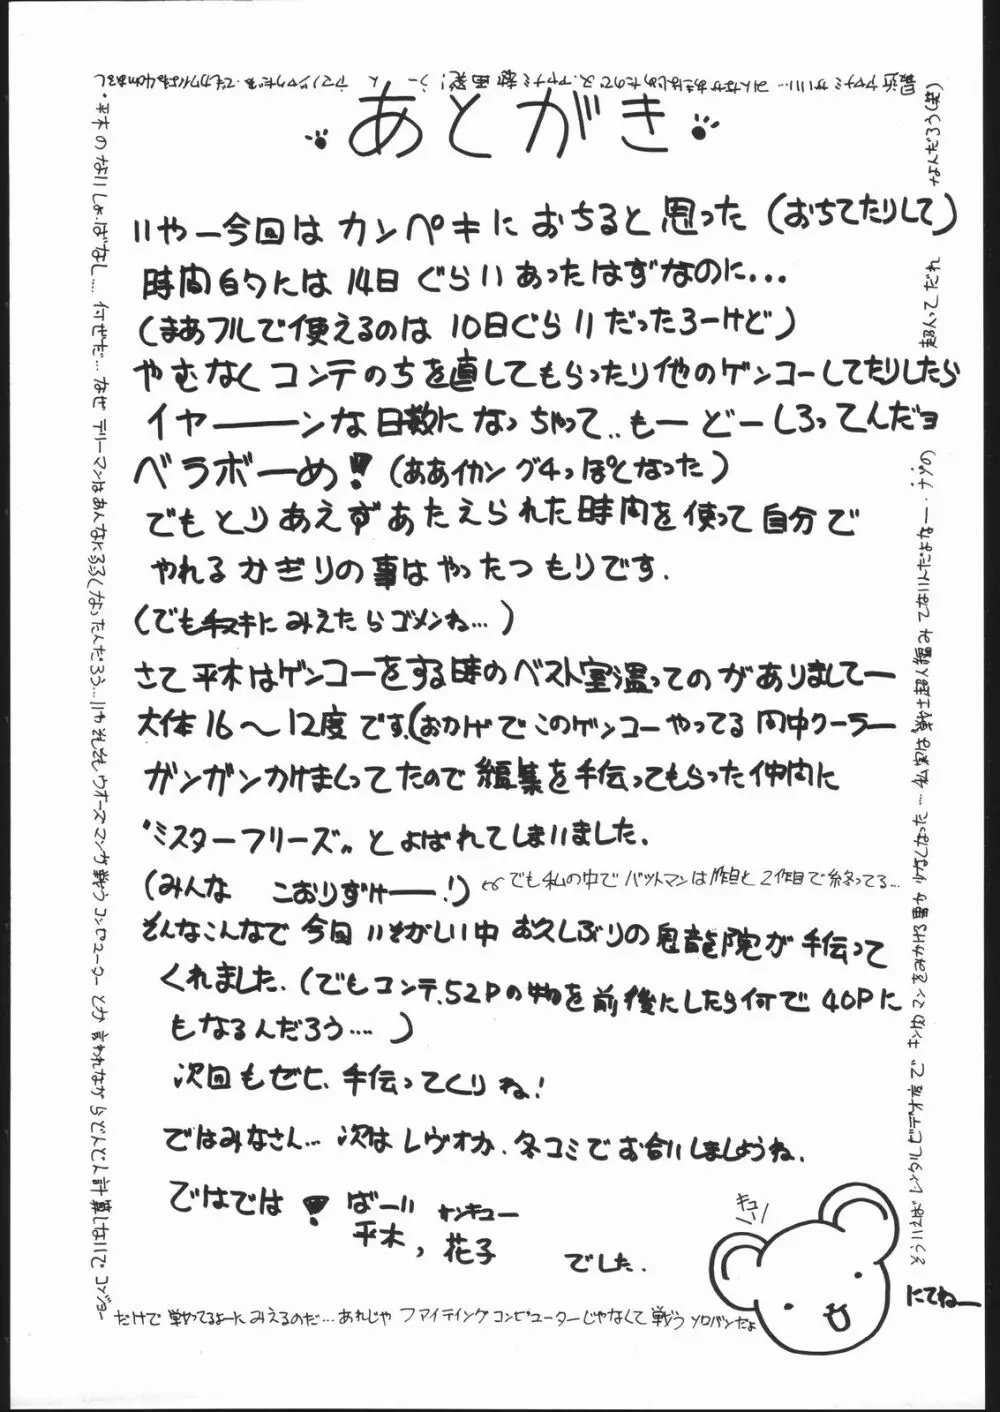 あとがき
いやー今回はカンペキにおちると思った(おちてたりして)
時間的には14日ぐらいあったはずなのに...
(まあフルで使えるのは10日ぐらいだったろーけど)
やむなくコンテのちを直してもらったり他のゲンコーしてたりしたら
イヤーーンな日数になっちゃって..もーどーしろってんだヨ
ベラボーめ!(ああイカングチっぽくなった)
でもとりあえずあたえられた時間を使って自分で
やれるかぎりの事はやったつもりです.
(でも手ヌキにみえたらゴメンね...)
さて平木はゲンコーをする時のベスト室温ってのがありましてー
大体16〜12度です.(おかげでこのゲンコーやってる間中クーラー
ガンガンかけまくってたので編集を手伝ってもらった仲間に
〝ミスターフリーズ〟とよばれてしまいました.
(みんな こおりずけーー!)
でも私の中でバットマンは1作目と2作目で終ってる...
そんなこんなで今回いそがしい中お久しぶりの鬼龍院が手伝って
くれました.(でもコンテ.52Pの物を前後にしたら何で40Pに
もなるんだろう....)
次回もぜひ、手伝ってくりね!
ではみなさん...次はレヴォか.冬コミでお合いしましょうね.
ではでは!ばーい サンキュー
平木,花子 でした.
キュー
にてねー
・平木のないしょばなし.... 何ぜだ...なぜデリーマンはあんなにろぶくなったんだろう...いやそれそもウォーズマンが戦うコンピューターとか言われながらどんどん計算しないで コンジョー
だけで戦ってるよーにみえるのだ...あれじゃファイティングコンピューターじゃなくて戦うソロバンだよ
そういえばレンタルビデオ店でキン肉マンをみかける事が少なくなった...私実は〝戦士超人編〟みてないんだよなー.ナゾの
超人ってだれ
なんだろう(笑)